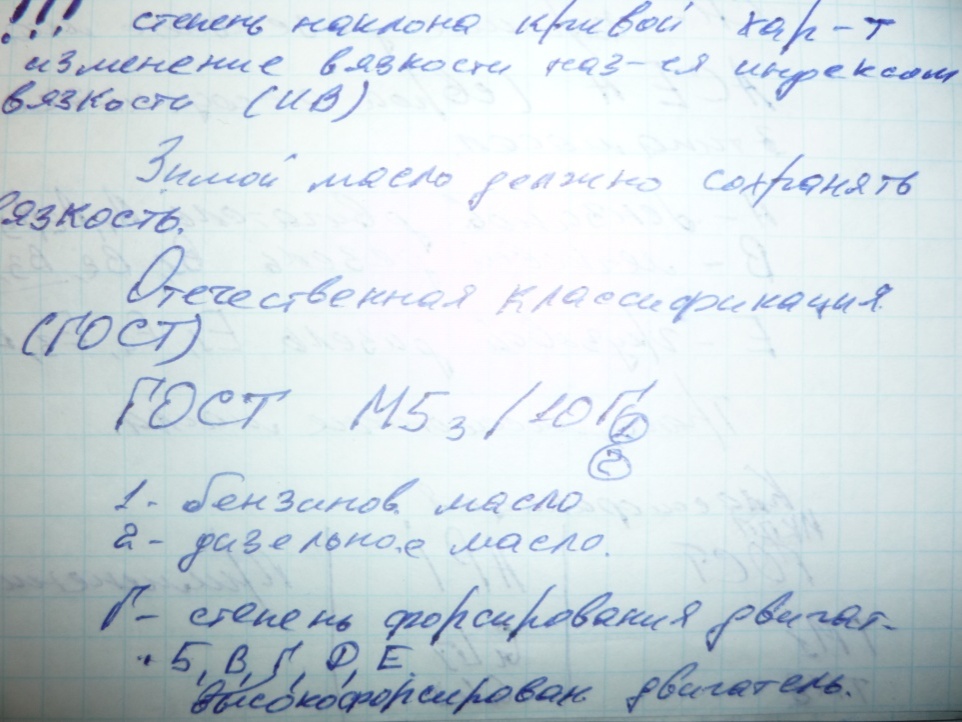 !!! степень наклона кривой хар-т
изменение вязкости наз-ся индексом
вязкости (ИВ)
Зимой масло должно сохранять
вязкость.
Отечественная классификация
(ГОСТ)
ГОСТ М5з/10Г1
2
1- бензинов. масло
2- дизельное масло.
Г- степень форсирования двигат-
Б, В, Г, Д, Е
высокофорсирован двигатель.